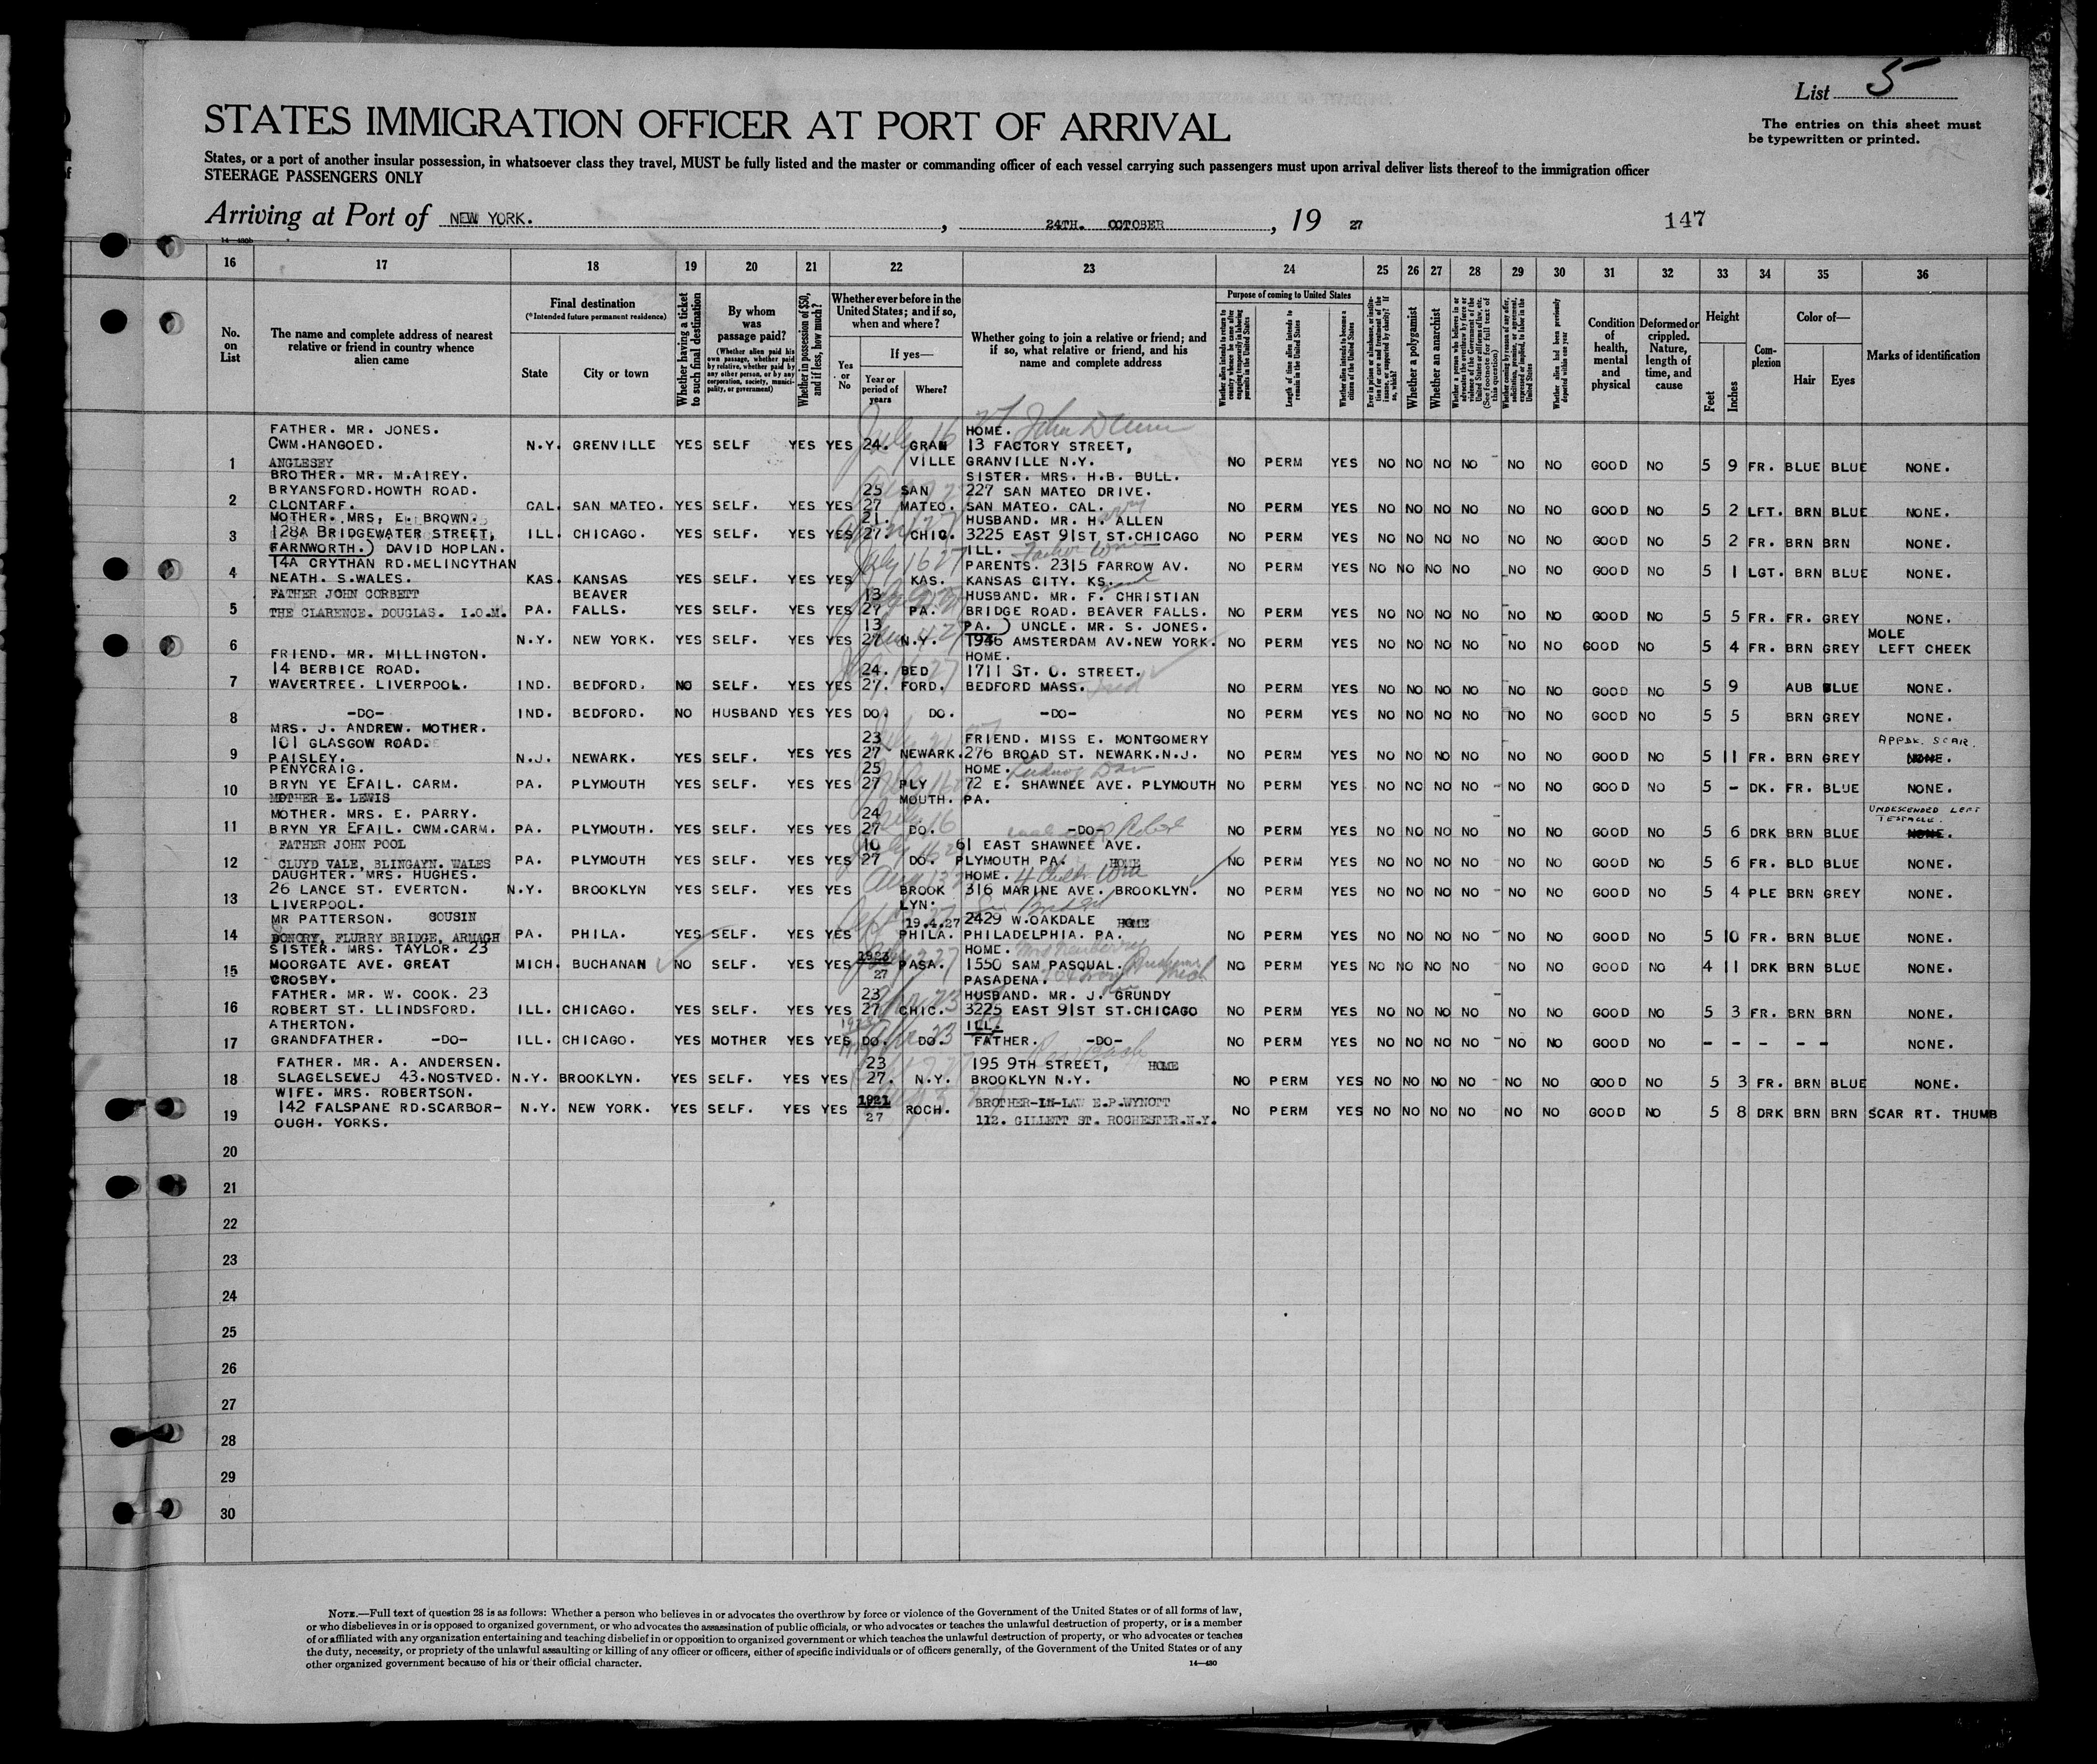 List 5
The entries on this sheet must
be typewritten or printed.
STATES IMMIGRATION OFFICER AT PORT OF ARRIVAL
States, or a port of another insular possession, in whatsoever class they travel, MUST be fully listed and the master or commanding officer of each vessel carrying such passengers must upon arrival deliver lists thereof to the immigration officer
STEERAGE PASSENGERS ONLY
Arriving at Port of NEW YORK. , 24TH. OCTOBER , 19 27 147
16 17 18 19 20 21 22 23 24 25 26 27 28 29 30 31 32 33 34 35 36
No. on List
The name and complete address of nearest relative or friend in country whence alien came
Final destination
(*Intended future permanent residence)
State
City or town
Whether having a ticket to such final destination
By whom was passage paid?
(Whether alien paid his own passage, whether paid by relative, whether paid by any other person, or by any corporation, society, municipality, or government)
Whether in possession of $50, and if less, how much?
Whether ever before in the United States; and if so, when and where?
Yes or No
If yes—
Year or period of years
Where?
Whether going to join a relative or friend; and if so, what relative or friend, and his name and complete address
Purpose of coming to United States
Length of time alien intends to remain in the United States
Whether alien intends to become a citizen of the United States
Whether a polygamist
Whether an anarchist
Condition of health, mental and physical
Deformed or crippled. Nature, length of time, and cause
Height
Feet
Inches
Complexion
Color of—
Hair
Eyes
Marks of identification
1 FATHER. MR. JONES. CWM.HANGOED. ANGLESEY N.Y. GRENVILLE YES SELF YES YES 24. GRANVILLE HOME. John 13 FACTORY STREET, GRANVILLE N.Y. NO PERM YES NO NO NO NO NO NO GOOD NO 5 9 FR. BLUE BLUE NONE.
2 BROTHER. MR. M.AIREY. BRYANSFORD.HOWTH ROAD. CLONTARF. CAL. SAN MATEO. YES SELF. YES YES 25 27 SAN MATEO. SISTER. MRS. H.B. BULL. 227 SAN MATEO DRIVE. SAN MATEO. CAL. NO PERM YES NO NO NO NO NO NO GOOD NO 5 2 LFT. BRN BLUE NONE.
3 MOTHER. MRS, E. BROWN. 128A BRIDGEWATER STREET, FARNWORTH.) ILL. CHICAGO. YES SELF. YES YES 21. 27. CHIC. HUSBAND. MR. H. ALLEN 3225 EAST 91ST ST.CHICAGO ILL. NO PERM YES NO NO NO NO NO NO GOOD NO 5 2 FR. BRN BRN NONE.
4 DAVID HOPLAN. 14A CRYTHAN RD.MELINCYTHAN NEATH. S.WALES. KAS. KANSAS YES SELF. YES YES July 16 27 KAS. PARENTS. 2315 FARROW AV. KANSAS CITY. KS. NO PERM YES NO NO NO NO NO NO GOOD NO 5 1 LGT. BRN BLUE NONE.
5 FATHER JOHN CORBETT THE CLARENCE. DOUGLAS. I.O.M. PA. BEAVER FALLS. YES SELF. YES YES 13 27 PA. HUSBAND. MR. F. CHRISTIAN BRIDGE ROAD. BEAVER FALLS. PA.) NO PERM YES NO NO NO NO NO NO GOOD NO 5 5 FR. FR. GREY NONE.
6 N.Y. NEW YORK. YES SELF. YES YES 13 27 N.Y. UNCLE. MR. S. JONES. 1946 AMSTERDAM AV.NEW YORK. NO PERM YES NO NO NO NO NO NO GOOD NO 5 4 FR. BRN GREY MOLE LEFT CHEEK
7 FRIEND. MR. MILLINGTON. 14 BERBICE ROAD. WAVERTREE. LIVERPOOL. IND. BEDFORD. NO SELF. YES YES 24. 27. BEDFORD. HOME. 1711 ST. O. STREET. BEDFORD MASS. NO PERM YES NO NO NO NO NO NO GOOD NO 5 9 AUB BLUE NONE.
8 -DO- IND. BEDFORD. NO HUSBAND YES YES DO. DO. -DO- NO PERM YES NO NO NO NO NO NO GOOD NO 5 5 BRN GREY NONE.
9 MRS. J. ANDREW. MOTHER. 101 GLASGOW ROAD. PAISLEY. N.J. NEWARK. YES SELF. YES YES 23 27 NEWARK. FRIEND. MISS E. MONTGOMERY 276 BROAD ST. NEWARK.N.J. NO PERM YES NO NO NO NO NO NO GOOD NO 5 11 FR. BRN GREY NONE. APPDX. SCAR.
10 PENYCRAIG. BRYN YE EFAIL. CARM. MOTHER E. LEWIS PA. PLYMOUTH YES SELF. YES YES 25 27 PLYMOUTH. HOME. 72 E. SHAWNEE AVE. PLYMOUTH PA. NO PERM YES NO NO NO NO NO NO GOOD NO 5 - DK. FR. BLUE NONE.
11 MOTHER. MRS. E. PARRY. BRYN YR EFAIL. CWM.CARM. PA. PLYMOUTH. YES SELF. YES YES 24 27 DO. -DO- NO PERM YES NO NO NO NO NO NO GOOD NO 5 6 DRK BRN BLUE NONE. UNDESCENDED LEFT TESTACLE.
12 FATHER JOHN POOL CLUYD VALE, BLINGAYN. WALES PA. PLYMOUTH YES SELF. YES YES 10 27 DO. 61 EAST SHAWNEE AVE. PLYMOUTH PA. HOME NO PERM YES NO NO NO NO NO NO GOOD NO 5 6 FR. BLD BLUE NONE.
13 DAUGHTER. MRS. HUGHES. 26 LANCE ST. EVERTON. LIVERPOOL. N.Y. BROOKLYN YES SELF. YES YES BROOKLYN. HOME. 316 MARINE AVE. BROOKLYN. NO PERM YES NO NO NO NO NO NO GOOD NO 5 4 PLE BRN GREY NONE.
14 MR PATTERSON. COUSIN DONORY, FLURRY BRIDGE, ARMAGH PA. PHILA. YES SELF. YES YES 19.4.27 PHILA. 2429 W.OAKDALE HOME PHILADELPHIA. PA. NO PERM YES NO NO NO NO NO NO GOOD NO 5 10 FR. BRN BLUE NONE.
15 SISTER. MRS. TAYLOR. 23 MOORGATE AVE. GREAT CROSBY. MICH. BUCHANAN NO SELF. YES YES 1923 27 PASA. HOME. 1550 SAM PASQUAL. PASADENA. NO PERM YES NO NO NO NO NO NO GOOD NO 4 11 DRK BRN BLUE NONE.
16 FATHER. MR. W. COOK. 23 ROBERT ST. LLINDSFORD. ATHERTON. ILL. CHICAGO. YES SELF. YES YES 23 27 CHIC. HUSBAND. MR. J. GRUNDY 3225 EAST 91ST ST.CHICAGO ILL. NO PERM YES NO NO NO NO NO NO GOOD NO 5 3 FR. BRN BRN NONE.
17 GRANDFATHER. -DO- ILL. CHICAGO. YES MOTHER YES YES DO. DO. FATHER. -DO- NO PERM YES NO NO NO NO NO NO GOOD NO - - - - - NONE.
18 FATHER. MR. A. ANDERSEN. SLAGELSEVEJ 43.NOSTVED. N.Y. BROOKLYN. YES SELF. YES YES 23 27. N.Y. 195 9TH STREET, HOME BROOKLYN N.Y. NO PERM YES NO NO NO NO NO NO GOOD NO 5 3 FR. BRN BLUE NONE.
19 WIFE. MRS. ROBERTSON. 142 FALSPANE RD.SCARBOR-OUGH. YORKS. N.Y. NEW YORK. YES SELF. YES YES 1921 27 ROCH. BROTHER-IN-LAW E.P.WYNOTT 112. GILLETT ST. ROCHESTER.N.Y. NO PERM YES NO NO NO NO NO NO GOOD NO 5 8 DRK BRN BRN SCAR RT. THUMB
20
21
22
23
24
25
26
27
28
29
30
NOTE.—Full text of question 28 is as follows: Whether a person who believes in or advocates the overthrow by force or violence of the Government of the United States or of all forms of law,
or who disbelieves in or is opposed to organized government, or who advocates the assassination of public officials, or who advocates or teaches the unlawful destruction of property, or is a member
of or affiliated with any organization entertaining and teaching disbelief in or opposition to organized government or which teaches the unlawful destruction of property, or who advocates or teaches
the duty, necessity, or propriety of the unlawful assaulting or killing of any officer or officers, either of specific individuals or of officers generally, of the Government of the United States or of any
other organized government because of his or their official character.
14—430